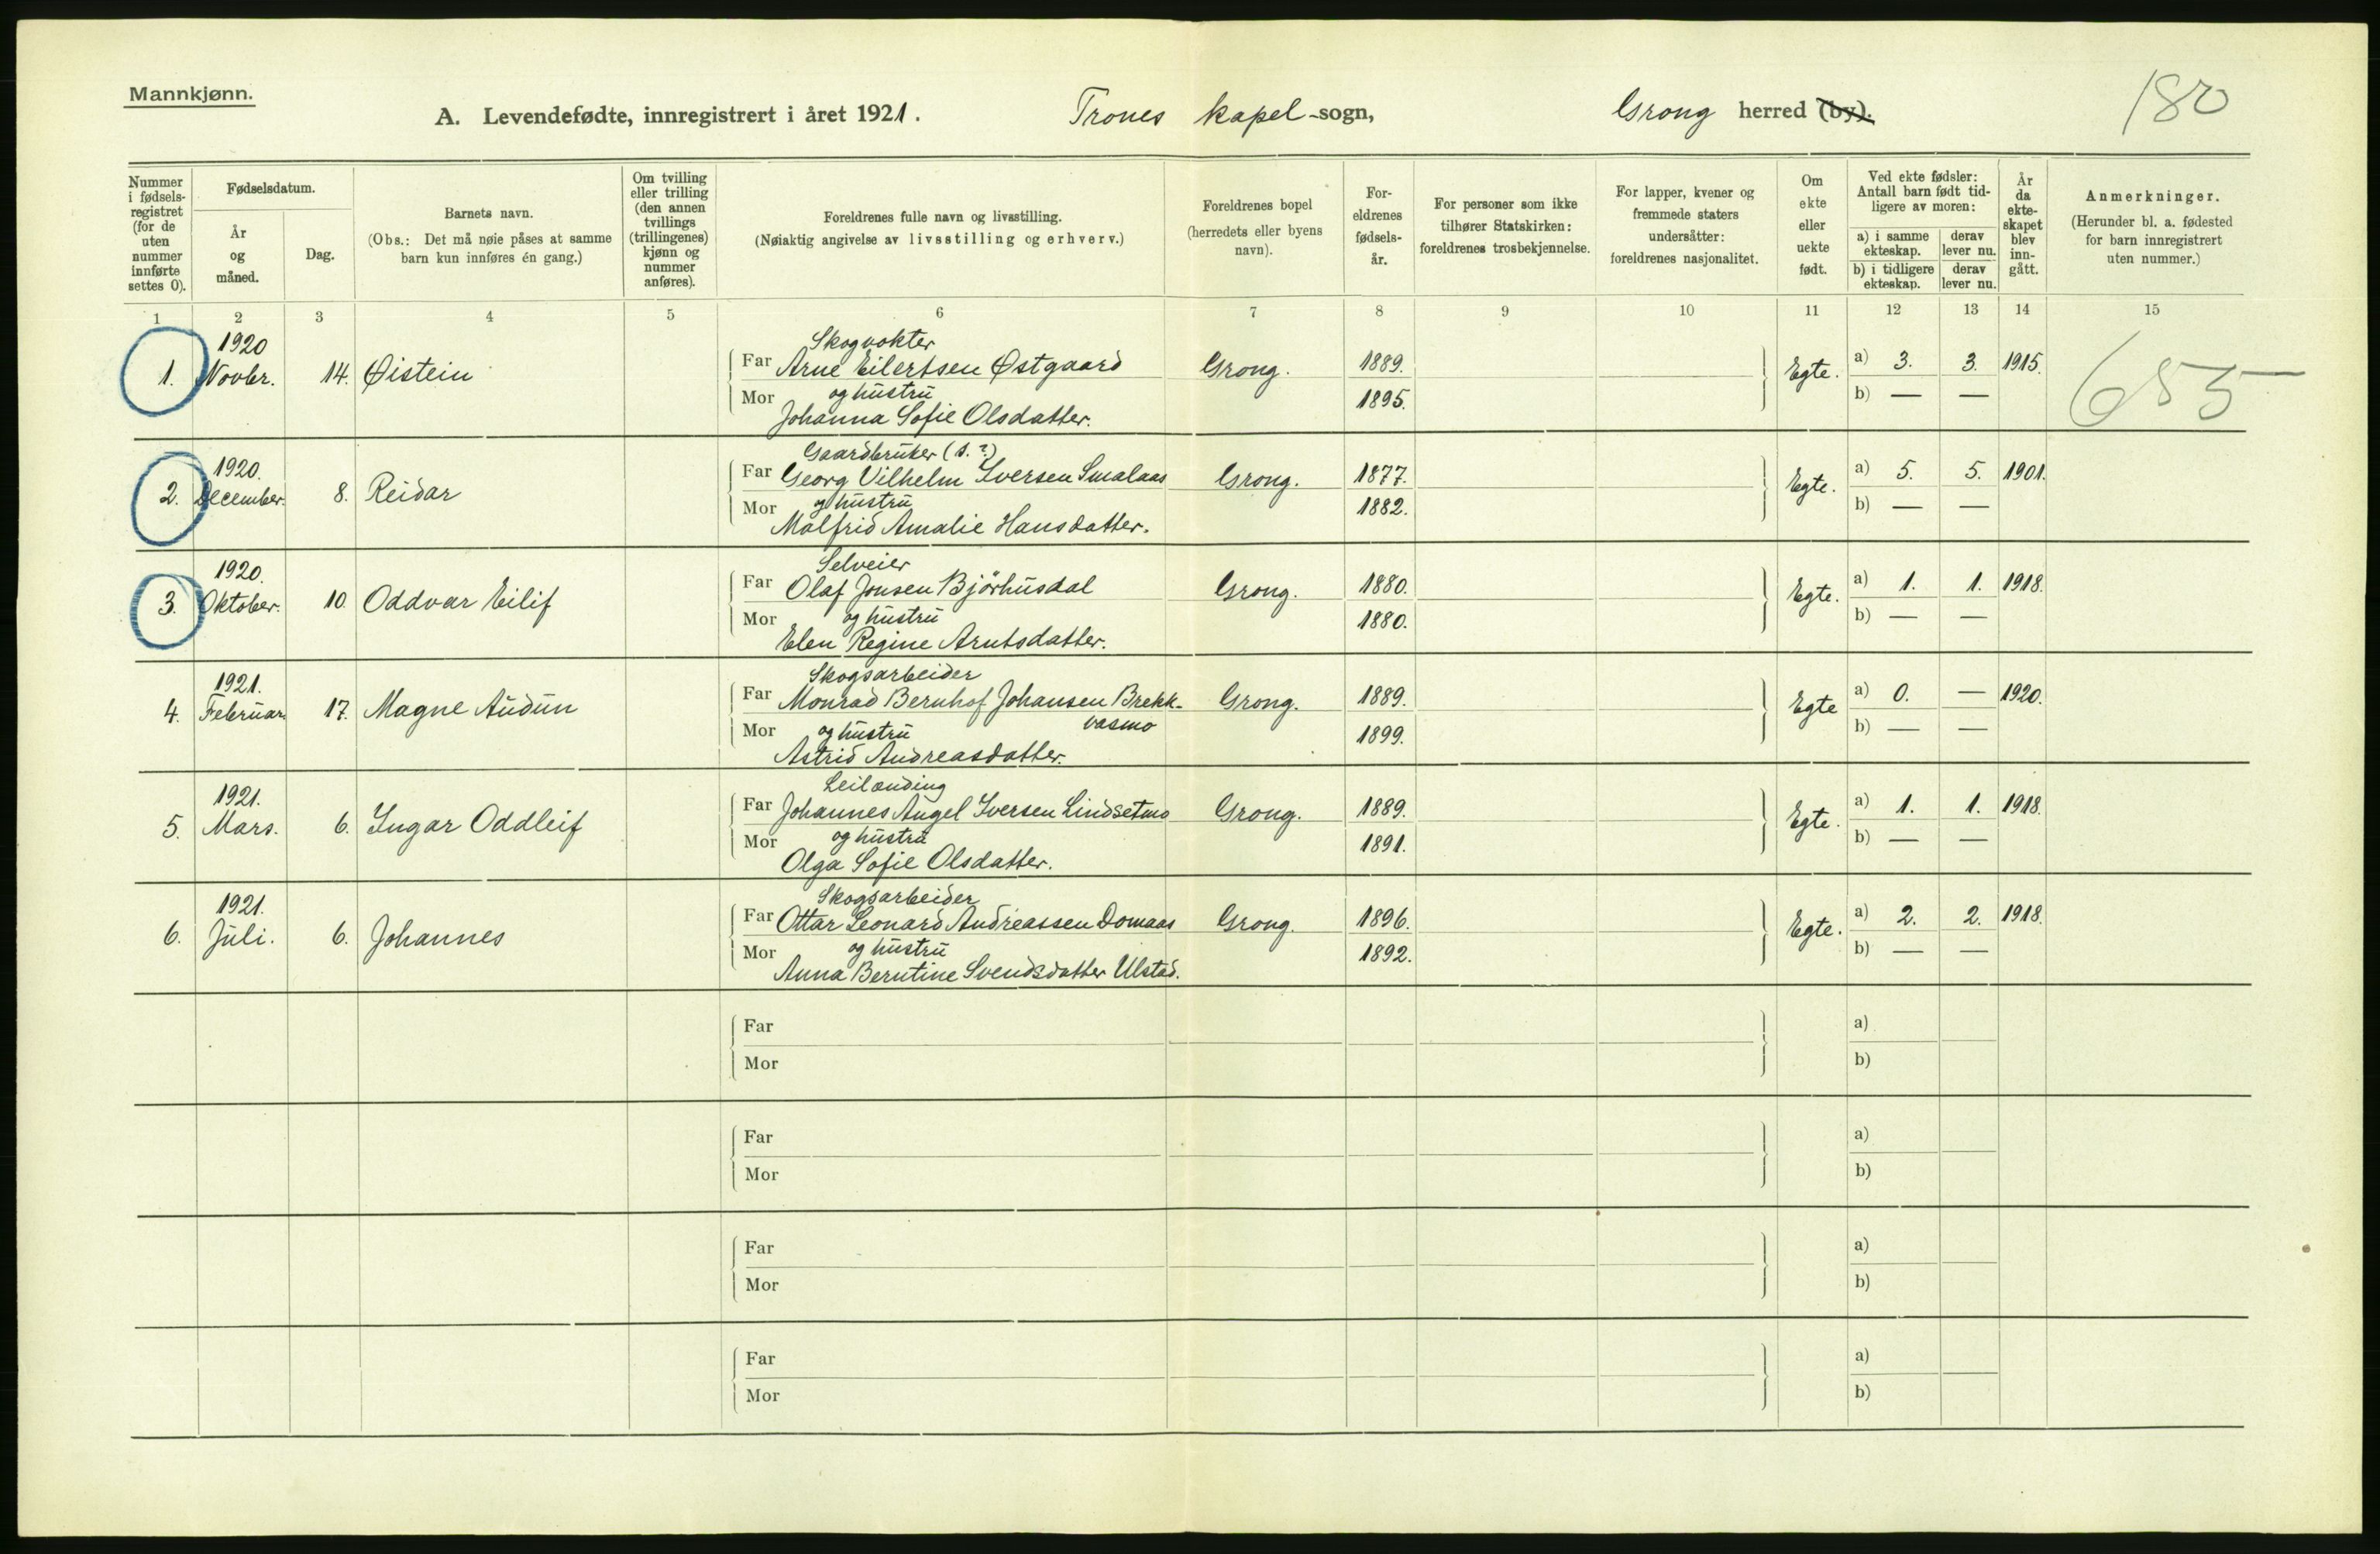 Mannkjønn.
A. Levendefødte, innregistrert i året 1921. Trones kapel-sogn, Grong herred (by).
180
Nummer i fødselsregistret (for de uten nummer innførte settes 0).
Fødselsdatum.
År og måned.
Dag.
Barnets navn.
(Obs.: Det må nøie påses at samme barn kun innføres én gang.)
Om tvilling eller trilling (den annen tvillings (trillingenes) kjønn og nummer anføres).
Foreldrenes fulle navn og livsstilling.
(Nøiaktig angivelse av livsstilling og erhverv.)
Foreldrenes bopel (herredets eller byens navn).
Foreldrenes fødselsår.
For personer som ikke tilhører Statskirken: foreldrenes trosbekjennelse.
For lapper, kvener og fremmede staters undersåtter: foreldrenes nasjonalitet.
Om ekte eller uekte født.
Ved ekte fødsler: Antall barn født tidligere av moren:
a) i samme ekteskap. derav lever nu.
b) i tidligere ekteskap. derav lever nu.
År da ekteskapet blev inngått.
Anmerkninger.
(Herunder bl. a. fødested for barn innregistrert uten nummer.)
1 2 3 4 5 6 7 8 9 10 11 12 13 14 15
1920 Skogvokter
1. Novbr. 14. Øistein Far Arne Eilertsen Østgaard Grong. 1889. Egte. a) 3. 3. 1915. 655
Mor og hustru 1895. b) — —
Johanna Sofie Olsdatter.
1920. Gaardbruker (s.?)
2. December. 8. Reidar Far Georg Vilhelm Iversen Smalaas Grong. 1877. Egte. a) 5. 5. 1901.
Mor og hustru 1882. b) — —
Malfrid Amalie Hansdatter.
1920. Selveier
3. Oktober. 10. Oddvar Eilif Far Olaf Jonsen Bjørhusdal Grong. 1880. Egte. a) 1. 1. 1918.
Mor og hustru 1880. b) — —
Elen Regine Arntsdatter.
1921. Skogsarbeider
4. Februar. 17. Magne Audun Far Monrad Bernhof Johansen Brekk- Grong. 1889. Egte a) 0. — 1920.
vasmo
Mor og hustru 1899. b) — —
Astrid Andreasdatter.
1921. Leilænding
5. Mars. 6. Ingar Oddleif Far Johannes Angel Iversen Lindsetmo Grong. 1889. Egte. a) 1. 1. 1918.
Mor og hustru 1891. b) — —
Olga Sofie Olsdatter.
1921. Skogsarbeider
6. Juli. 6. Johannes Far Ottar Leonard Andreassen Domaas Grong. 1896. Egte. a) 2. 2. 1918.
Mor og hustru 1892. b) — —
Anna Berntine Svendsdatter Ulstad.
Far a)
Mor b)
Far a)
Mor b)
Far a)
Mor b)
Far a)
Mor b)